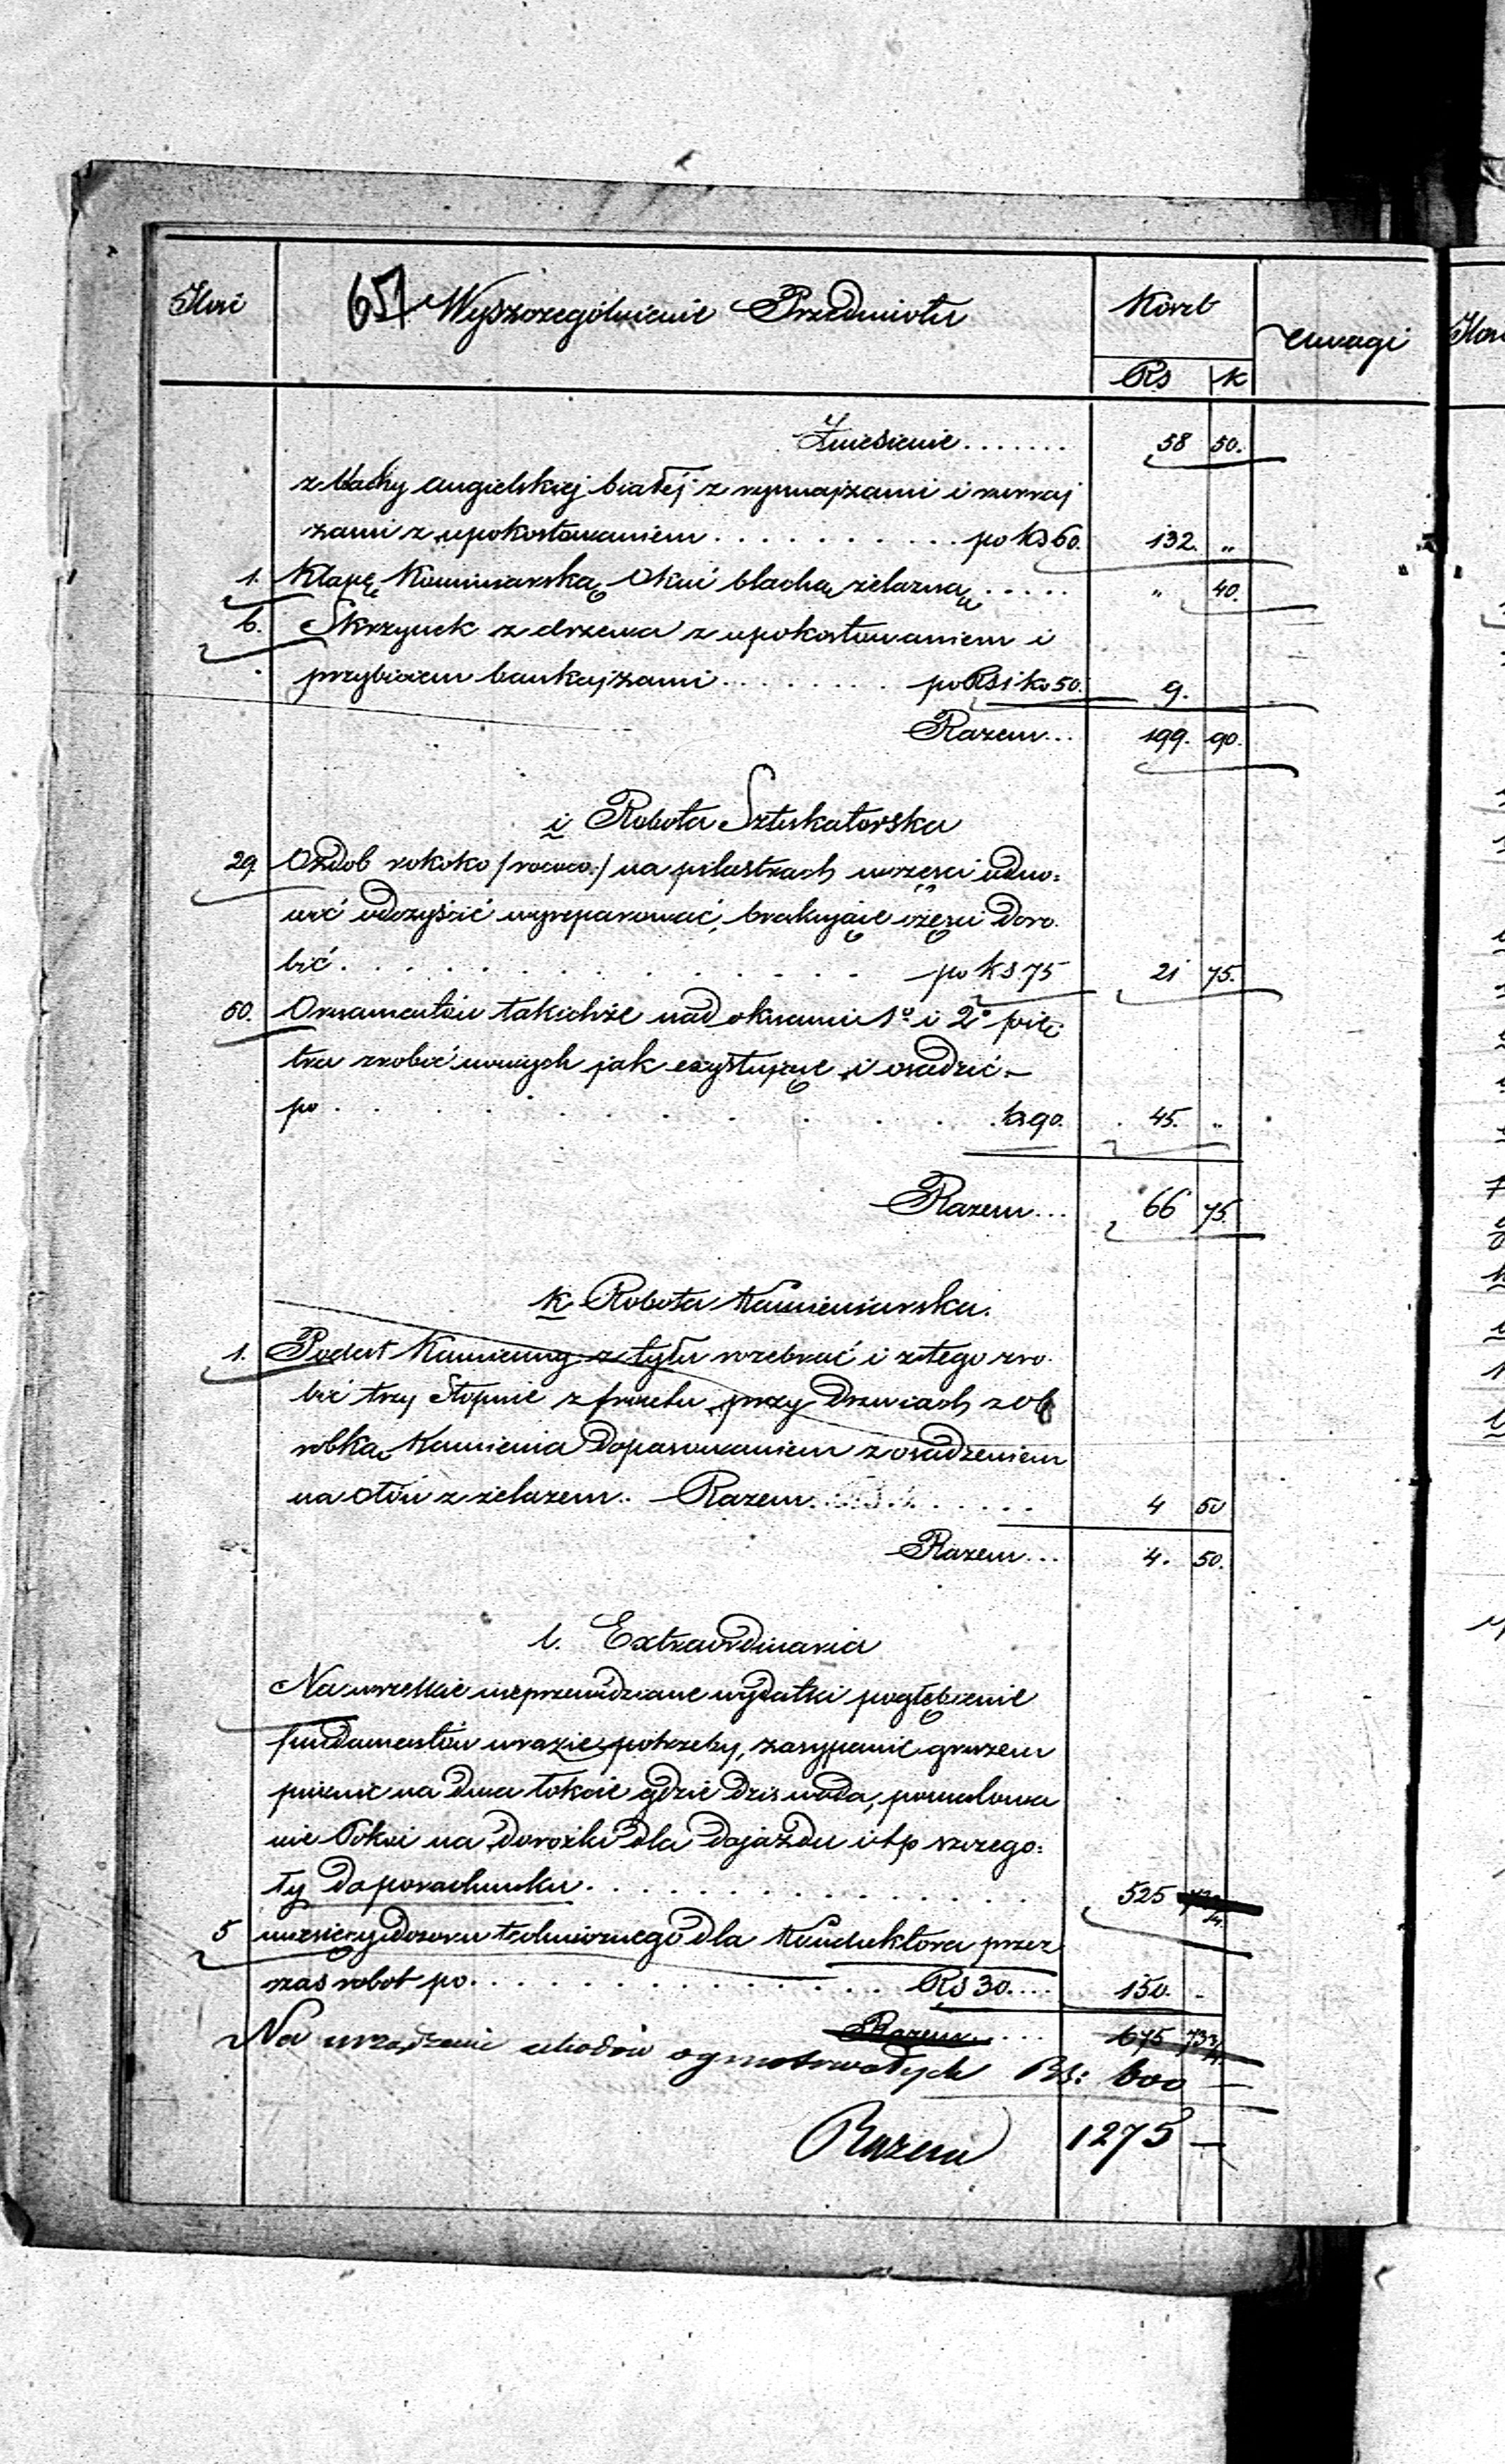 Ilość 651 Wyszczególnienie Przedmiotu Koszt Uwagi
Rs k
Zniesienie ....... 58 50.
z blachy angielskiej białej z rynnajzami i
zami z upokostowaniem .......... po ks 60. 132. „
1. Klapę Kominiarską Okuć blachą żelazną ..... „ 40.
6. Skrzynek z drzewa z upokostowaniem i
przybiciem bankajzami ........ po Rs 1 ks 50. 9.
Razem... 199. 90.
i Robota Sztukatorska
29 Ozdób rokoko /rococo./ na pilastrach w części odno-
wić odczyścić wyreparować, brakujące części doro-
bić ............... po ks 75 21 75.
50. Ornamentów takichże nad oknami 1º i 2º pię-
tra zrobić nowych jak exystujące i osadzić –
po .......... ks 90. 45. „
Razem... 66 75.
k Robota Kamieniarska.
1. Podest Kamienny z tyłu rozebrać i z tego zro-
bić trzy Stopnie z frontu przy Drzwiach z ob
robką Kamienia Dopasowaniem z osadzeniem
na ołów z żelazem. Razem ....... 4 50
Razem... 4. 50.
l. Extraordinaria
Na wszelkie nieprzewidziane wydatki pogłębienie
fundamentów w razie potrzeby, zasypanie gruzem
piwnic na dwa łokcie gdzie Dziś woda, pomalowa
nie Pokoi na dorożki dla Dojazdu itp szczegó-
ły Do porachunku .......... 525
5 miesięcy dozoru technicznego dla Konduktora przez
czas robot po .......... Rs 30.... 150. -
Razem ..... 675 73
Na urządzenie schodów ogniotrwałych Rs: 600 —
Razem 1275 —